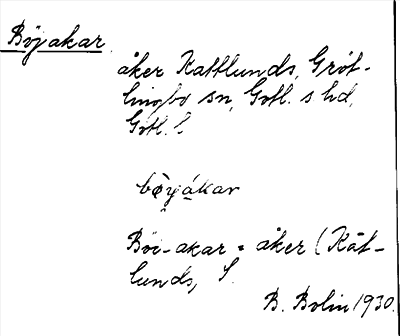 Böjakar
åker Kattlunds, Gröt-
lingbo sn, Gotl. s hd,
Gotl. l
böyákar
Böi-akar = åker (Kat-
lunds, S.
B. Bolin 1930.